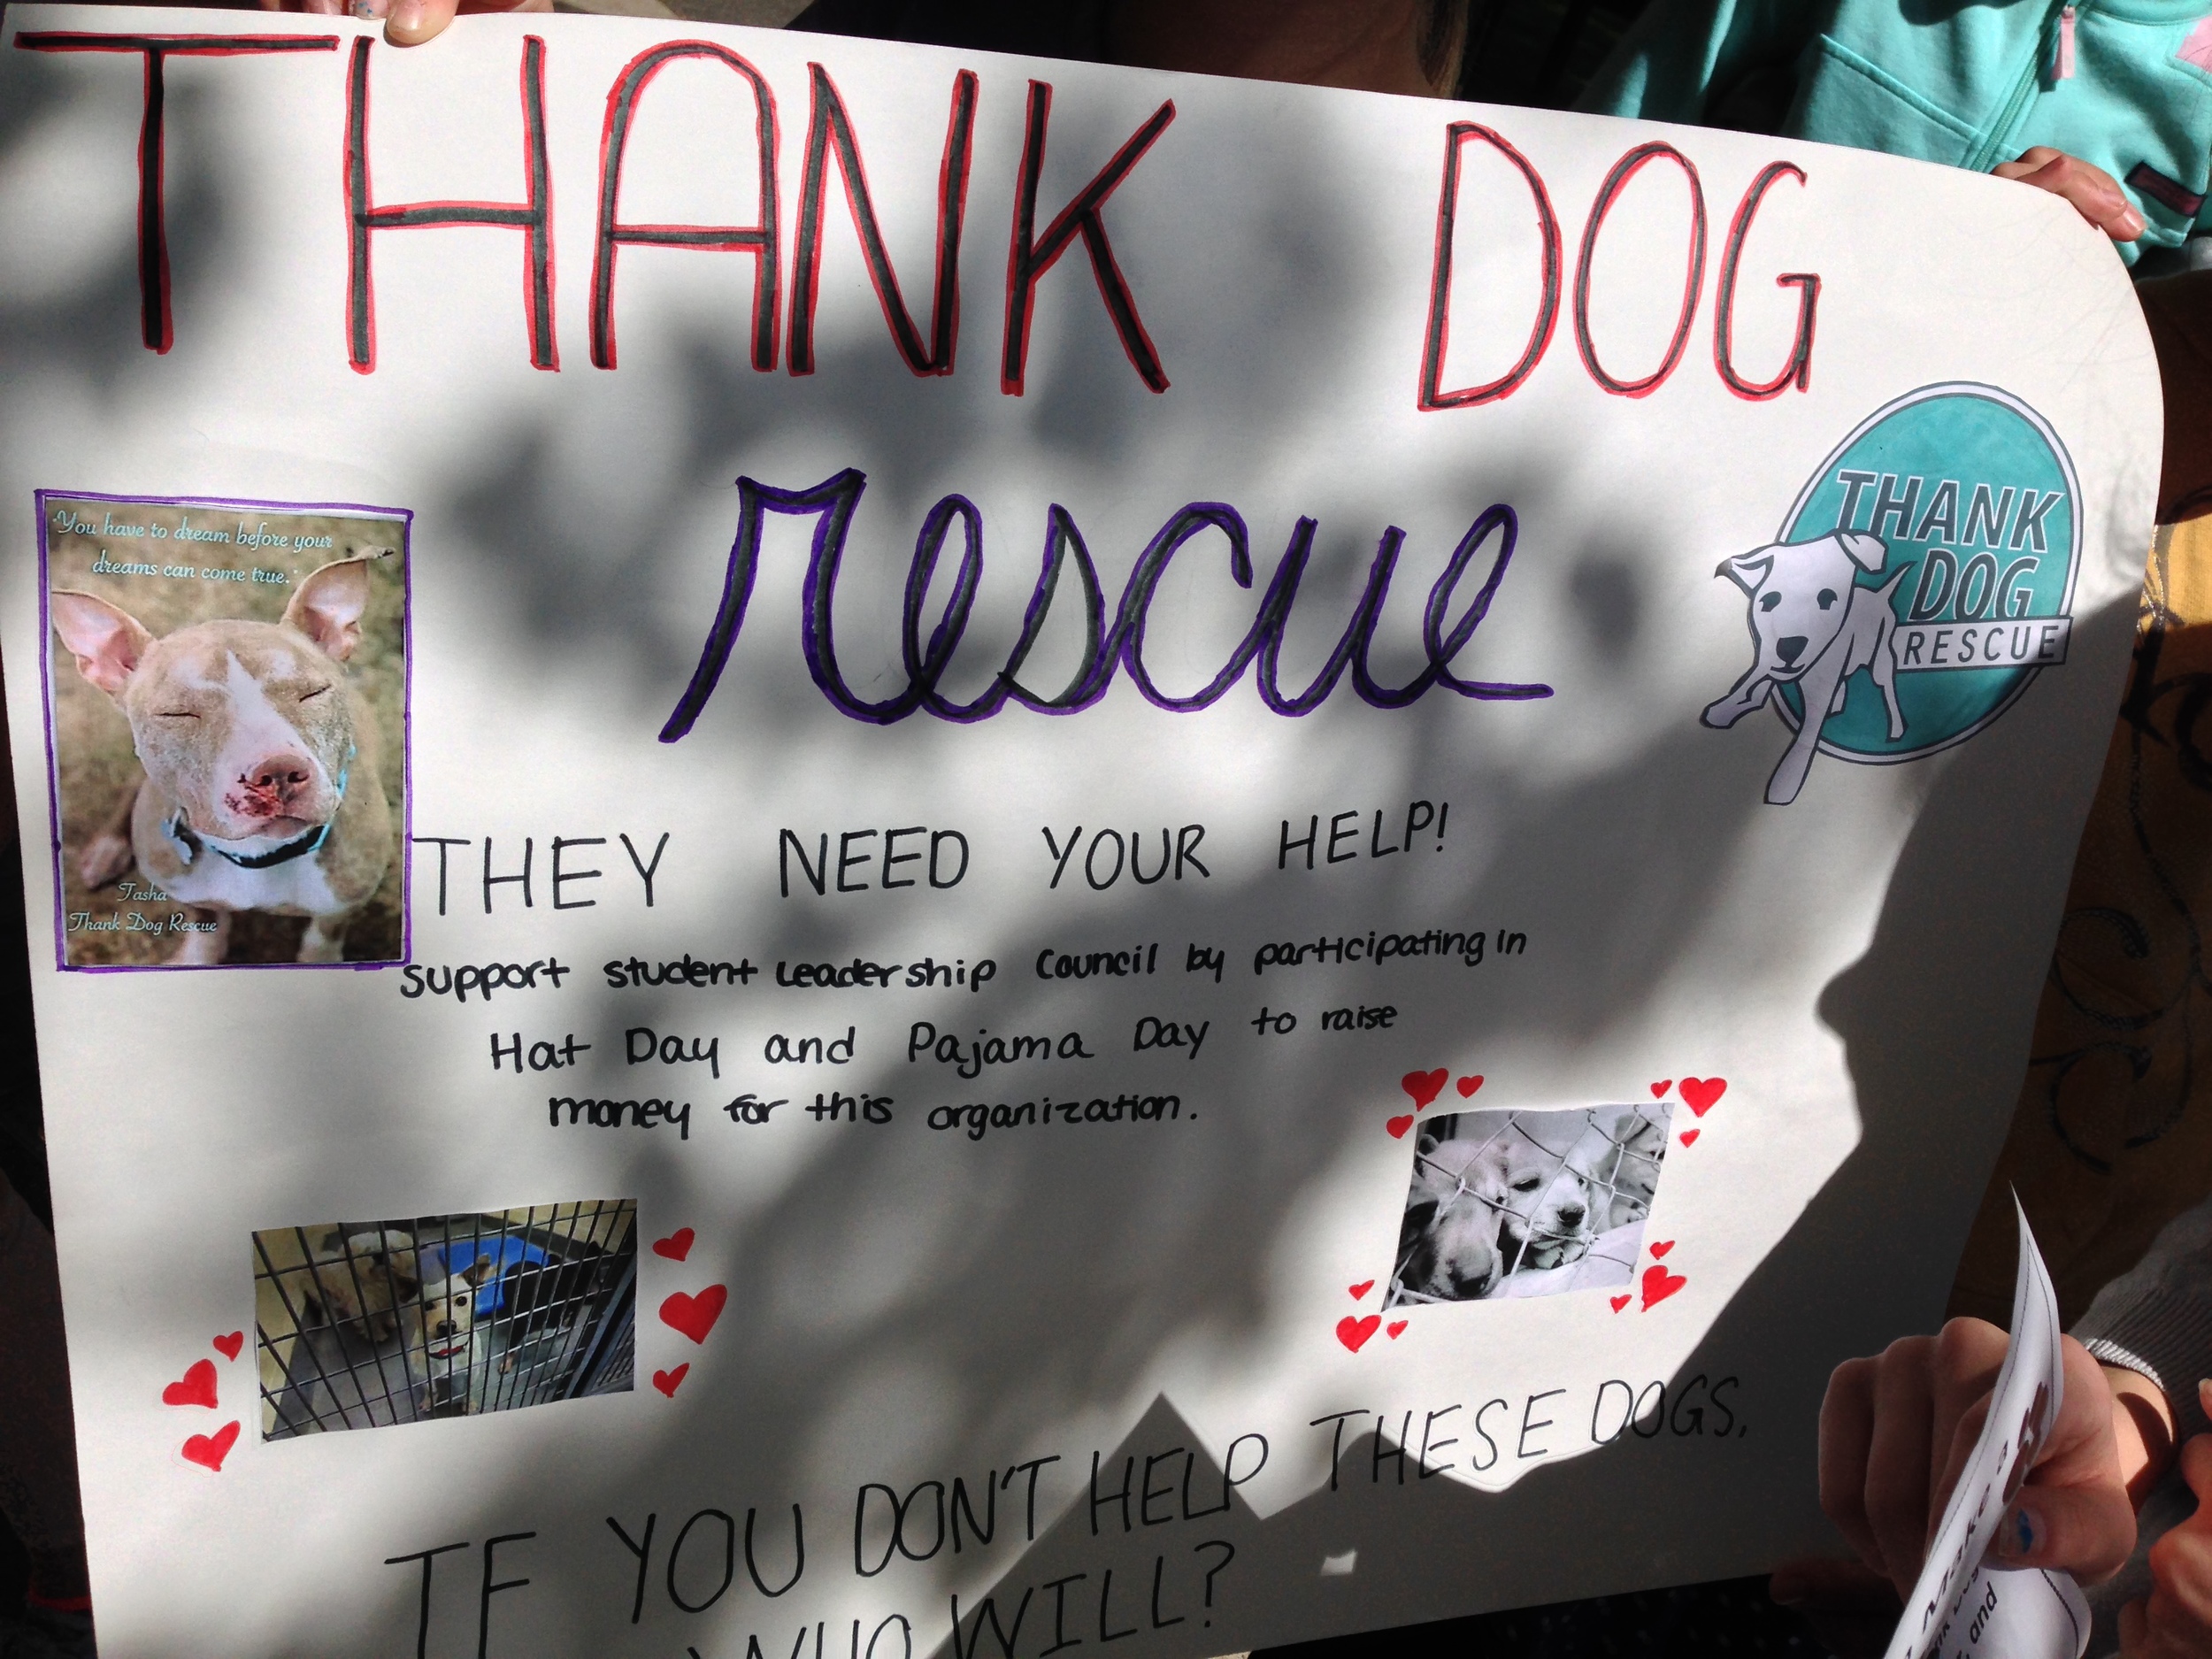 THANK DOG
rescue
"You have to dream before your
dreams can come true."
Tasha
Thank Dog Rescue
THANK
DOG
RESCUE
THEY NEED YOUR HELP!
support student Leadership Council by participating in
Hat Day and Pajama Day to raise
money for this organization.
IF YOU DON'T HELP THESE DOGS,
WHO WILL?
Make a
and